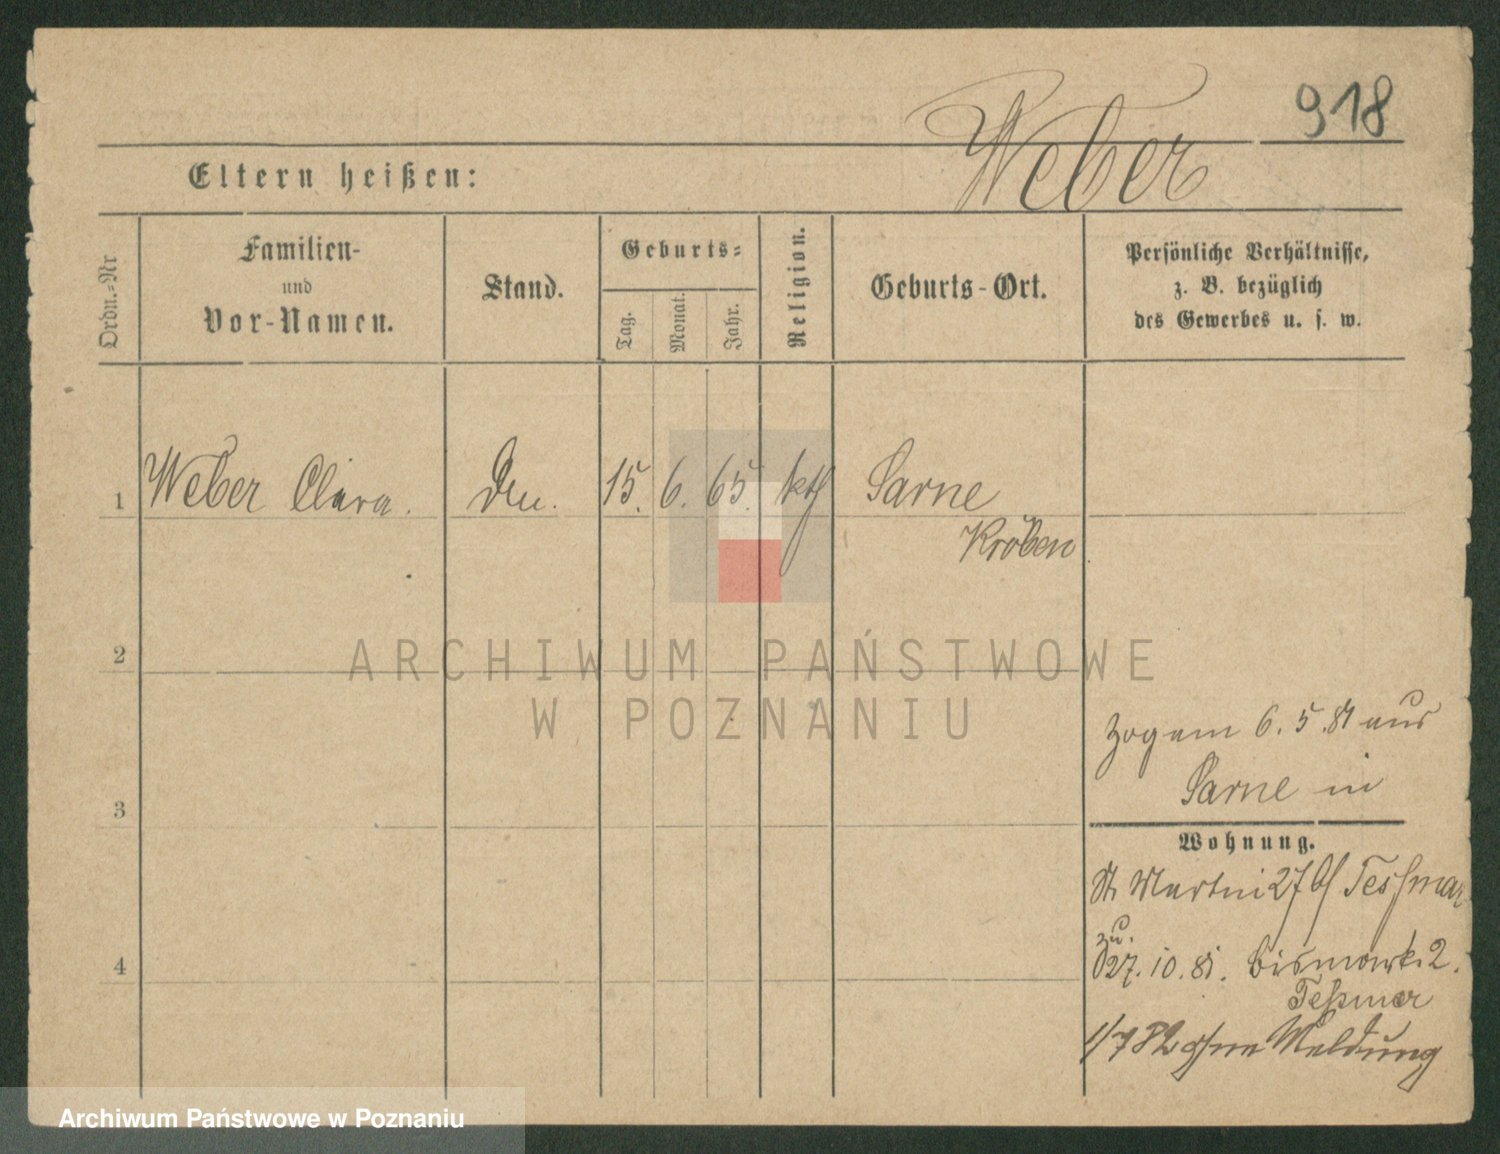 918
Weber
Eltern heißen:
Ordn.-Nr
Familien-
und
Vor-Namen.
Stand.
Geburts-
Tag.
Monat.
Jahr.
Religion.
Geburts-Ort.
Persönliche Verhältnisse,
z. B. bezüglich
des Gewerbes u. s. w.
1 Weber Clara. 15. 6. 65. kth Sarne
Kröben
2
ARCHIWUM PAŃSTWOWE
W POZNANIU
zog am 6. 5. 81 aus
Sarne in
3
Wohnung.
St Martni 27 b/ Tessmar
zu.
27. 10. 81. Bismark. 2.
4
Teßmar
1/7 82 ohne Meldung
Archiwum Państwowe w Poznaniu